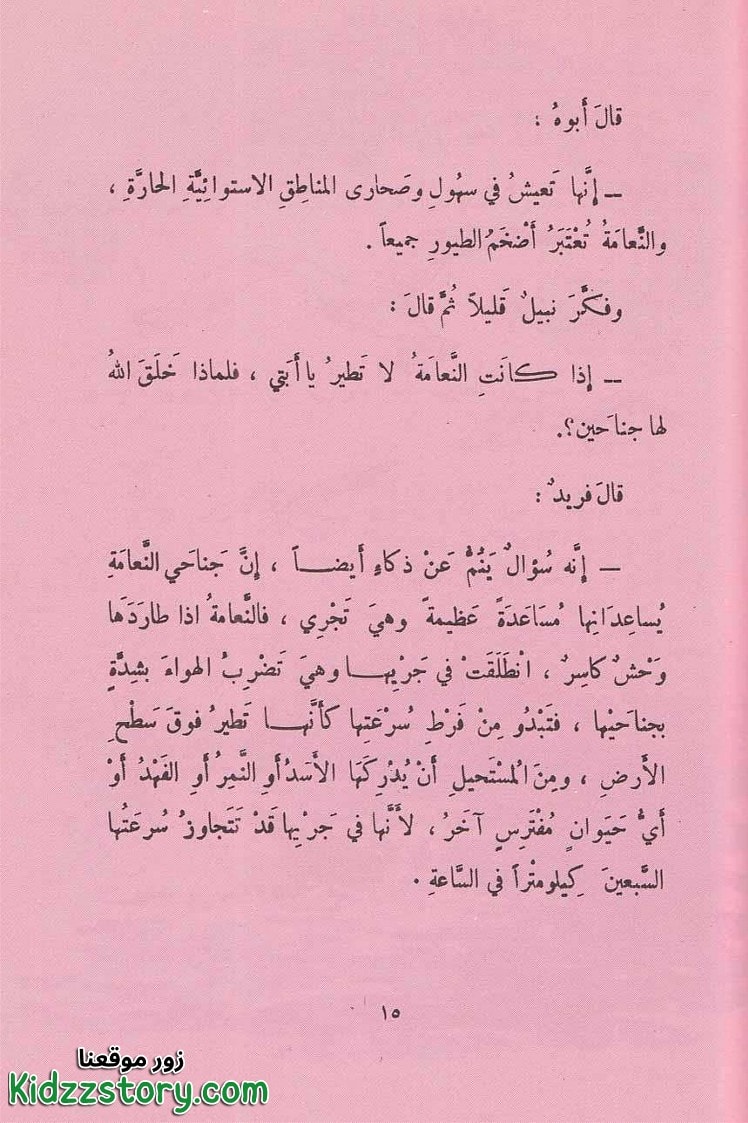 قالَ أَبوهُ :
ــ إِنَّها تَعيشُ في سهُولِ وصَحارى المناطِقِ الاستوائِيَّةِ الحارَّةِ ،
والنَّعامَةُ تُعْتَبَرُ أَضْخَمُ الطيورِ جميعاً .
وفكَّرَ نبيلٌ قَليلاً ثُمَّ قالَ :
ــ إِذا كانَتِ النَّعامَةُ لا تَطيرُ يا أَبَتي ، فلماذا خَلَقَ اللهُ
لها جناحَين؟.
قالَ فريدٌ :
ــ إِنَّه سُؤالٌ يَنُمُّ عَنْ ذكاءٍ أَيضاً ، إِنَّ جَناحَي النعامَةِ
يُساعِدَانِها مُسَاعَدَةً عَظيمةً وهيَ تَجْرِي ، فالنَّعامةُ اذا طارَدَها
وَحْشٌ كاسِرٌ ، انْطَلَقَتْ في جَرْيِها وهيَ تَضْرِبُ الهواءَ بشِدَّةٍ
بجناحَيْها ، فتَبْدُو مِنْ فَرْطِ سُرْعَتِها كأَنَّها تَطيرُ فوقَ سَطْحِ
الأَرضِ ، ومِنَ المُسْتَحيلِ أَنْ يُدْرِكَهَا الأَسَدُ أَو النَّمِرُ أَو الفَهْدُ أَوْ
أَيُّ حَيَوانٍ مُفْتَرِسٍ آخَرُ ، لأَنَّها في جَرْيِها قَدْ تَتَجاوزُ سُرعَتُها
السَّبعينَ كِيلومتْراً في السَّاعةِ .
١٥
زور موقعنا
Kidzzstory.com